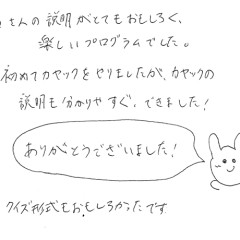 さんの説明がとてもおもしろく、
楽しいプログラムでした。
初めてカヤックをやりましたが、カヤックの
説明も分かりやすく、できました!
ありがとうございました!
クイズ形式もおもしろかったです